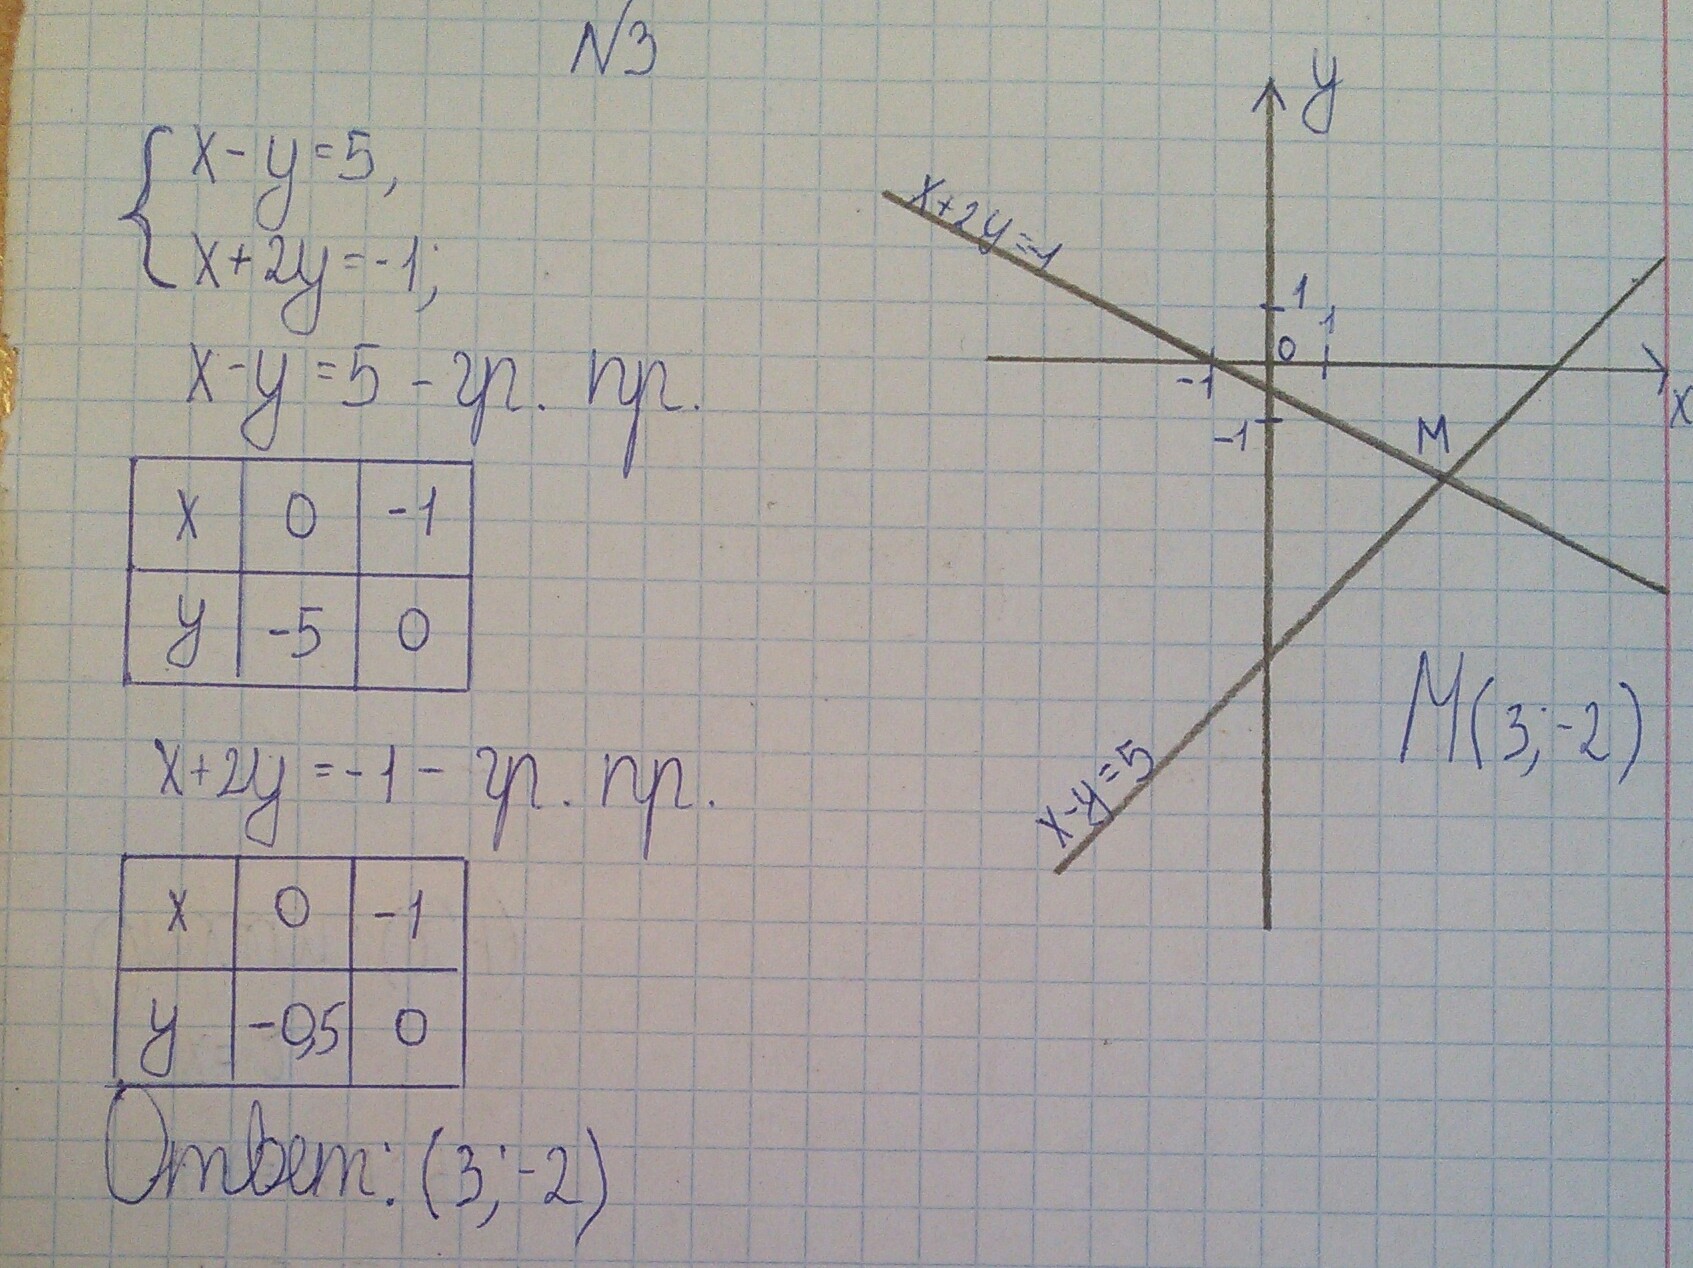 N3
x-y=5,
x+2y=-1;
x-y=5 - гр. пр.
x 0 -1
y -5 0
x+2y=-1 - гр. пр.
x 0 -1
y -0,5 0
Ответ: (3;-2)
y
x+2y=-1
1
1
0
-1
x
-1
M
M(3;-2)
x-y=5